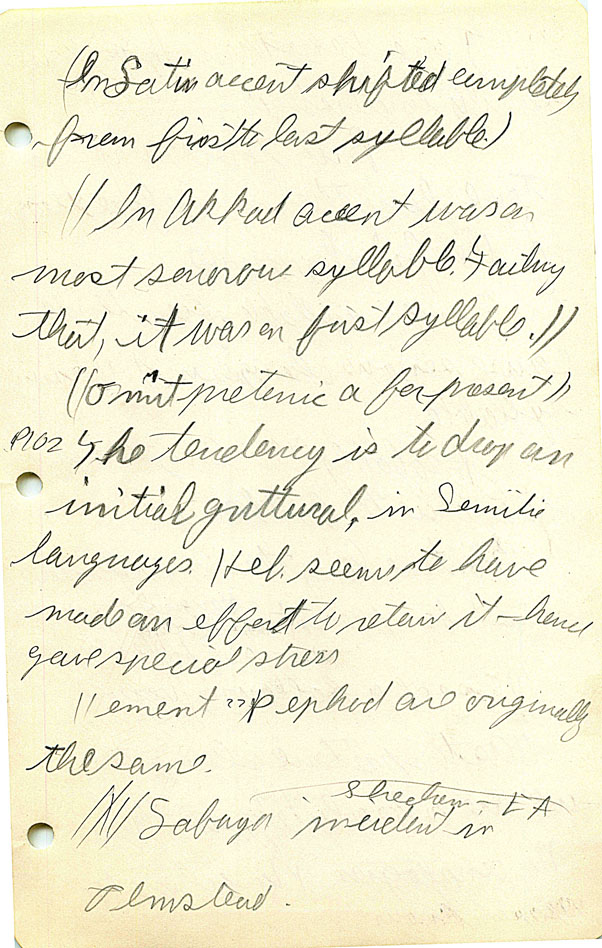 (In Latin accent shifted completely
from first to last syllable.)
// In Akkad accent was on
most sonorous syllable. Failing
that, it was on first syllable.//
((Omit pretonic a for present))
P102 The tendency is to drop an
initial guttural, in Semitic
languages. Heb. seems to have
made an effort to retain it - hence
gave special stress
// ement ephod are originally
the same.
Shechem - EA
//X// Sabaya incident in
Olmstead.